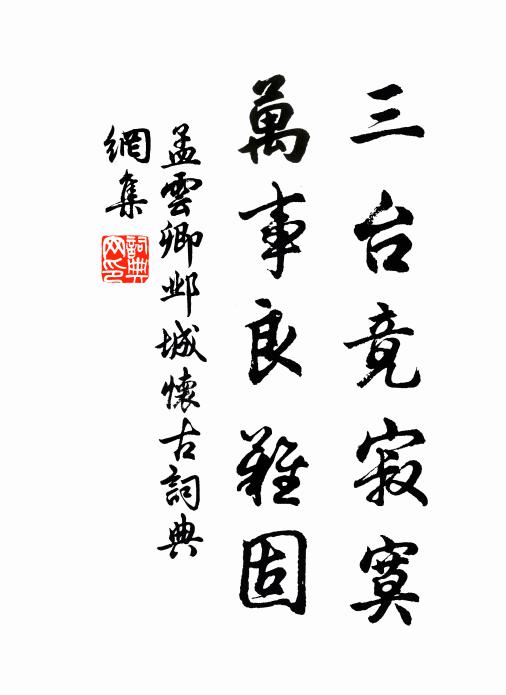 三台竟寂寞
萬事良難固
孟雲卿邺城懷古詞典
網集
詞典
网印